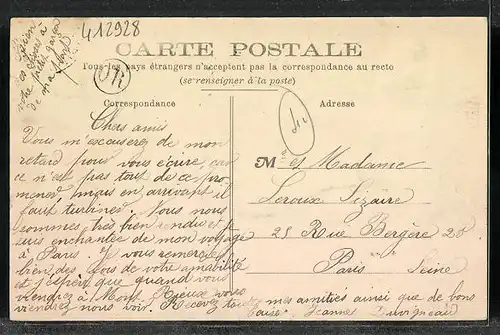 412928
bien
des choses à
votre petit garçon
de ma part
CARTE POSTALE
Tous les pays étrangers n'acceptent pas la correspondance au recto
(se renseigner à la poste)
OR
Correspondance
Chers amis
Vous m'excuserez de mon
retard pour vous écrire, car
ce n'est pas tout de ce pro
mener, mais en arrivant il
faut turbiner. Nous nous
sommes très bien rendus et
suis enchantée de mon voyage
à Paris. Je vous remercie
bien des fois de votre amabilité
et j'espère que quand vous
viendrez à Mont vous
viendrez nous voir. Recevez toutes
mes amitiés ainsi que de bons
baisers. Jeanne Duvigneau
Adresse
Mr et Madame
Leroux Lizaire
25 Rue Bergère 25
Paris Seine